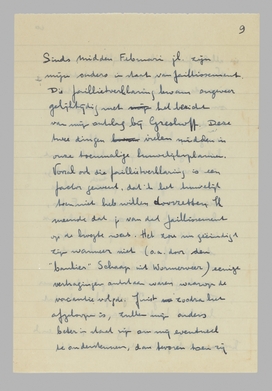 9
Sinds midden Februari jl. zijn
mijn ouders in staat van faillissement.
De faillietverklaring kwam ongeveer
gelijktijdig met het bericht
van mijn ontslag bij Greshoff. Deze
twee dingen vielen midden in
onze toenmalige huwelijksplannen.
Vooral ook die faillietverklaring is een
factor geweest, dat 't het huwelijk
toen niet heb willen doorzetten. Ik
meende dat j van dat faillissement
op de hoogte was. Het zou
zijn wanneer niet (o.a. door den
"bankier" Schaap uit Wormerveer) eenige
vertragingen ontstaan waren waarop de
vacantie volgde. Juist zoodra het
afgeloopen is, zullen mijn ouders
beter in staat zijn om mij eventueel
te ondersteunen, dan tevoren toen zij